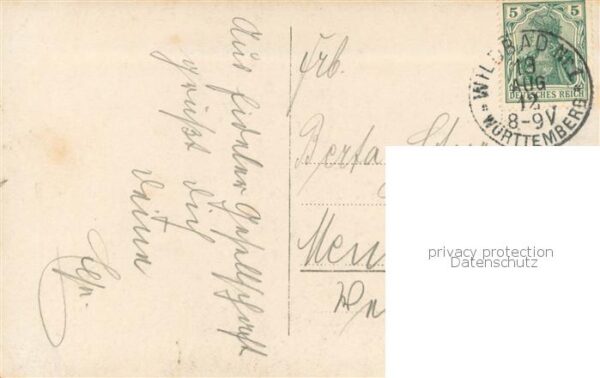 Aus fideler Gesellschaft
grüßt Dich
Deine
Frl.
Berta
5 5
DEUTSCHES REICH
WILDBAD
19
AUG
12
8-9V
WÜRTTEMBERG
privacy protection
Datenschutz